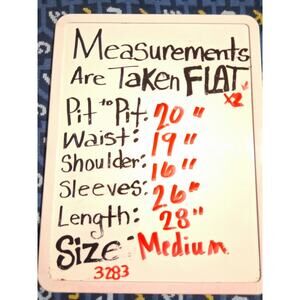 Measurements
Are Taken FLAT
x2
Pit to Pit: 20"
Waist: 19"
Shoulder: 16"
Sleeves: 26"
Length: 28"
Size: Medium
3283